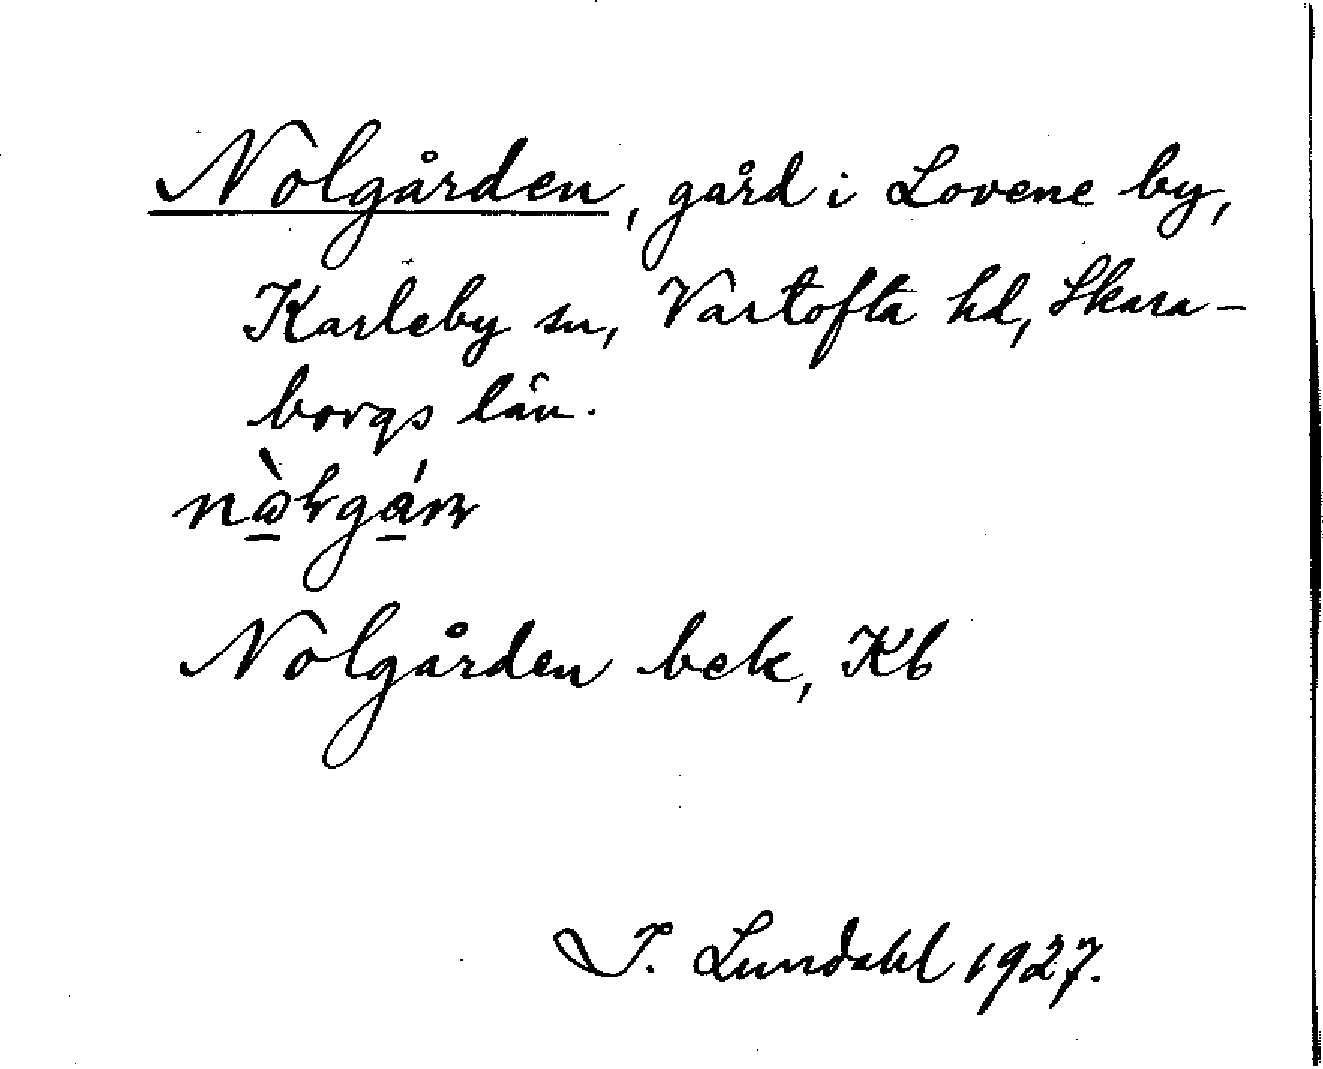 Nolgården, gård i Lovene by,
Karleby sn, Vartofta hd, Skara-
borgs län.
Nolgården bek, Kb
I. Lundahl 1927.